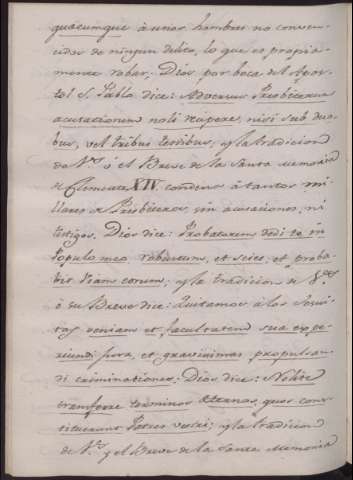 quæcumque à unos hombres no conven-
cidos de ningun delito, lo que es propia-
mente robar: Dios por boca del Apos-
tol S. Pablo dice: Adversus Presbiterum
acusationem noli recipere, nisi sub duo-
bus, vel tribus testibus; y la tradicion
de V.s ó el Breve de la Santa memoria
de Clemente XIV condena á tantos mi-
llares de Presbiteros, sin acusaciones, ni
testigos. Dios dice: Probatorem dedi te in
populo meo robustum, et scies, et proba-
bis viam eorum; y la tradicion de V.s
ó su Breve dice: Quitamos à los Jesui-
tas veniam et facultatem sua expe-
riundi jura, et gravissimas propulsan-
di criminationes: Dios dice: Nolite
transferre terminos æternos, quos cons-
tituerunt Patres vestri; y la tradicion
de V.s y el Breve de la Santa Memoria